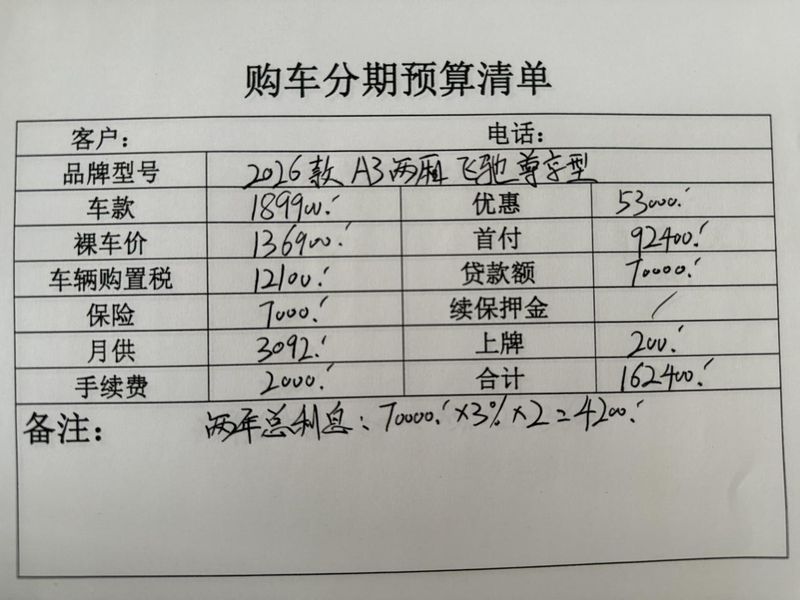 购车分期预算清单
客户： 电话：
品牌型号 2026款 A3两厢 飞驰尊享型
车款 189900.- 优惠 53000.-
裸车价 136900.- 首付 92400.-
车辆购置税 12100.- 贷款额 70000.-
保险 7000.- 续保押金 /
月供 3092.- 上牌 200.-
手续费 2000.- 合计 162400.-
备注： 两年总利息：70000.-×3%×2=4200.-